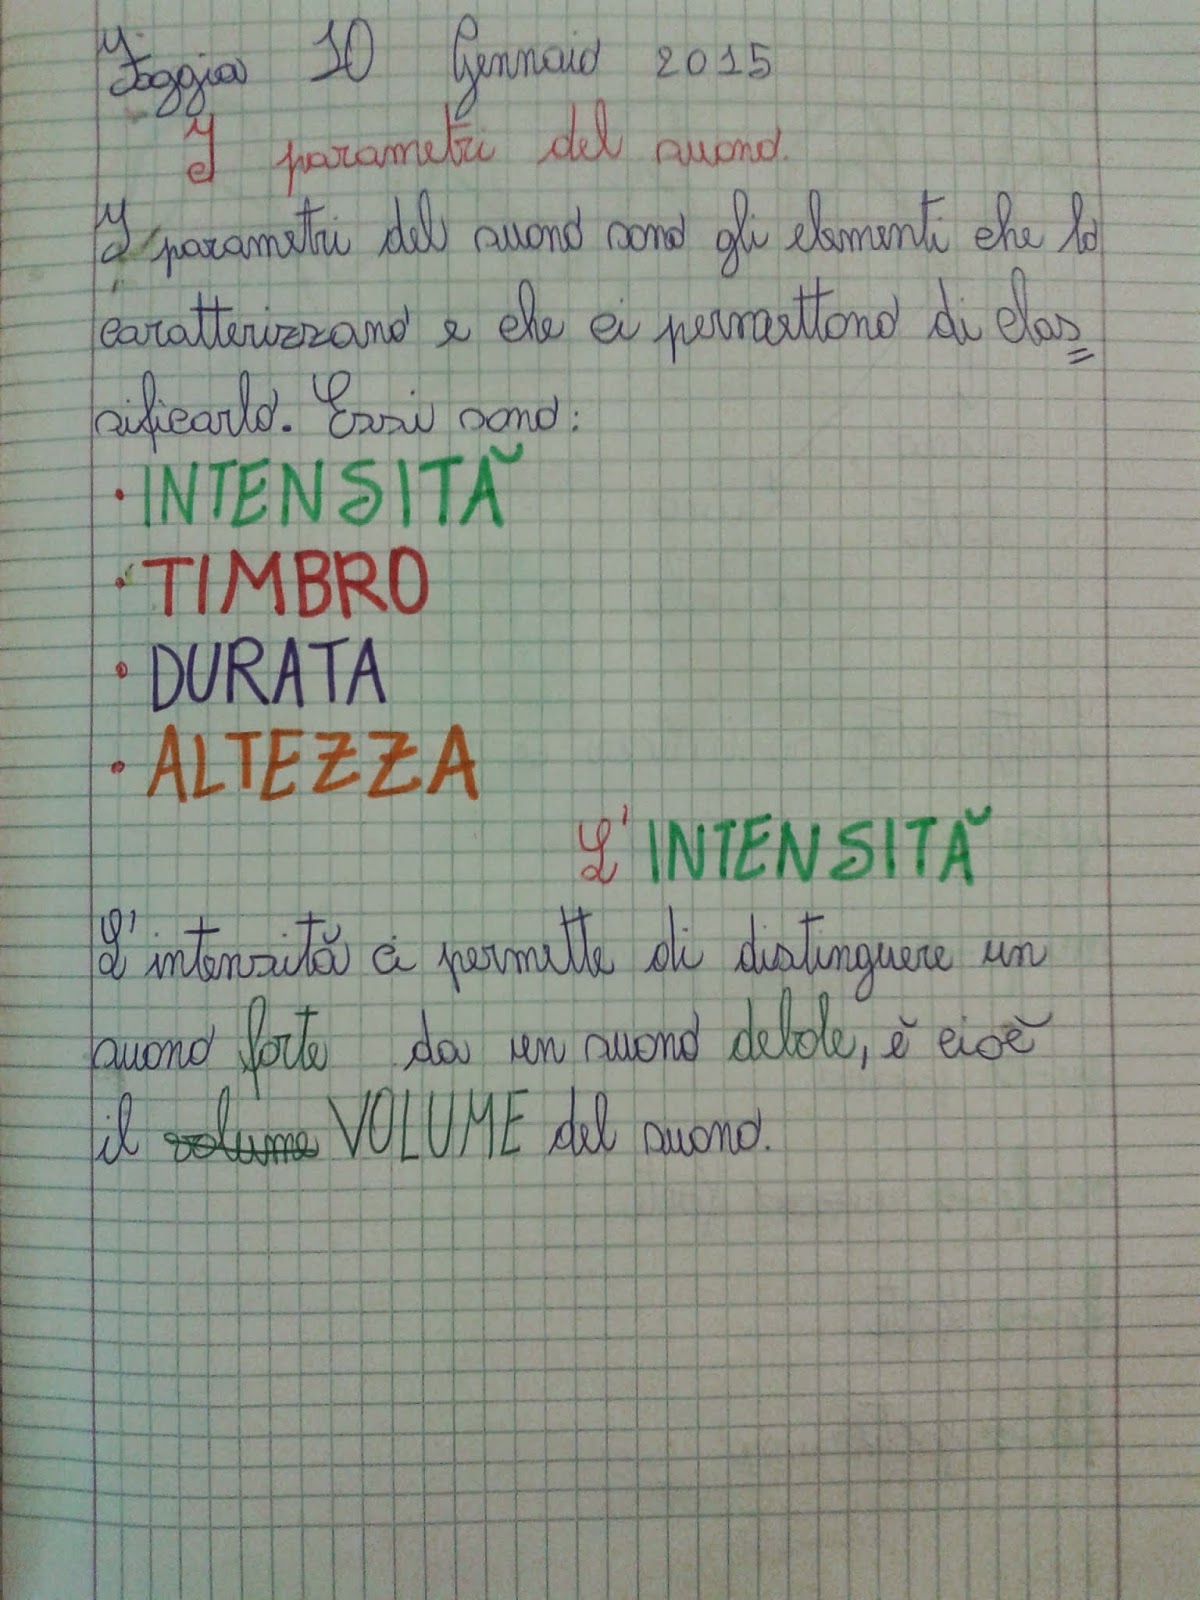 Foggia 10 Gennaio 2015
I parametri del suono.
I parametri del suono sono gli elementi che lo
caratterizzano e che ci permettono di clas=
sificarlo. Essi sono:
• INTENSITÀ
• TIMBRO
• DURATA
• ALTEZZA
L'INTENSITÀ
L'intensità ci permette di distinguere un
suono forte da un suono debole, è cioè
il volume VOLUME del suono.